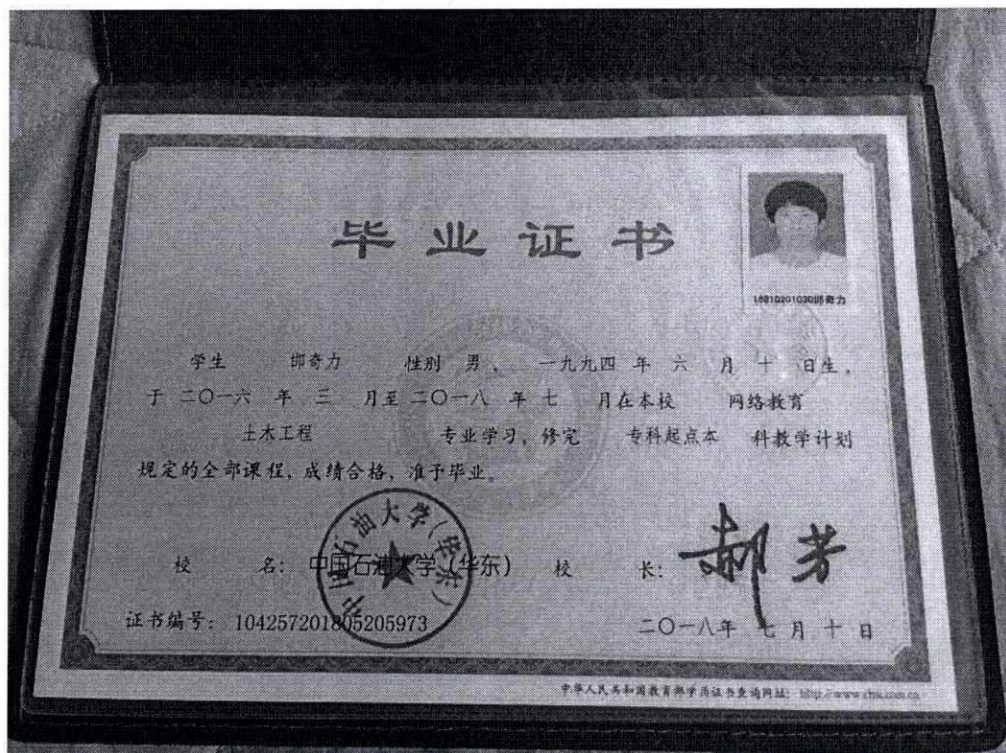 毕业证书
学生 邯奇力 性别 男、 一九九四 年 六 月 十 日生,
于 二〇一六 年 三 月至 二〇一八 年 七 月在本校 网络教育
土木工程 专业学习, 修完 专科起点本 科教学计划
规定的全部课程, 成绩合格, 准予毕业。
校 名: 中国石油大学(华东) 校 长: 郝芳
中国石油大学(华东)
证书编号: 104257201805205973 二〇一八年 七 月 十 日
中华人民共和国教育部学历证书查询网址: http://www.chsi.com.cn